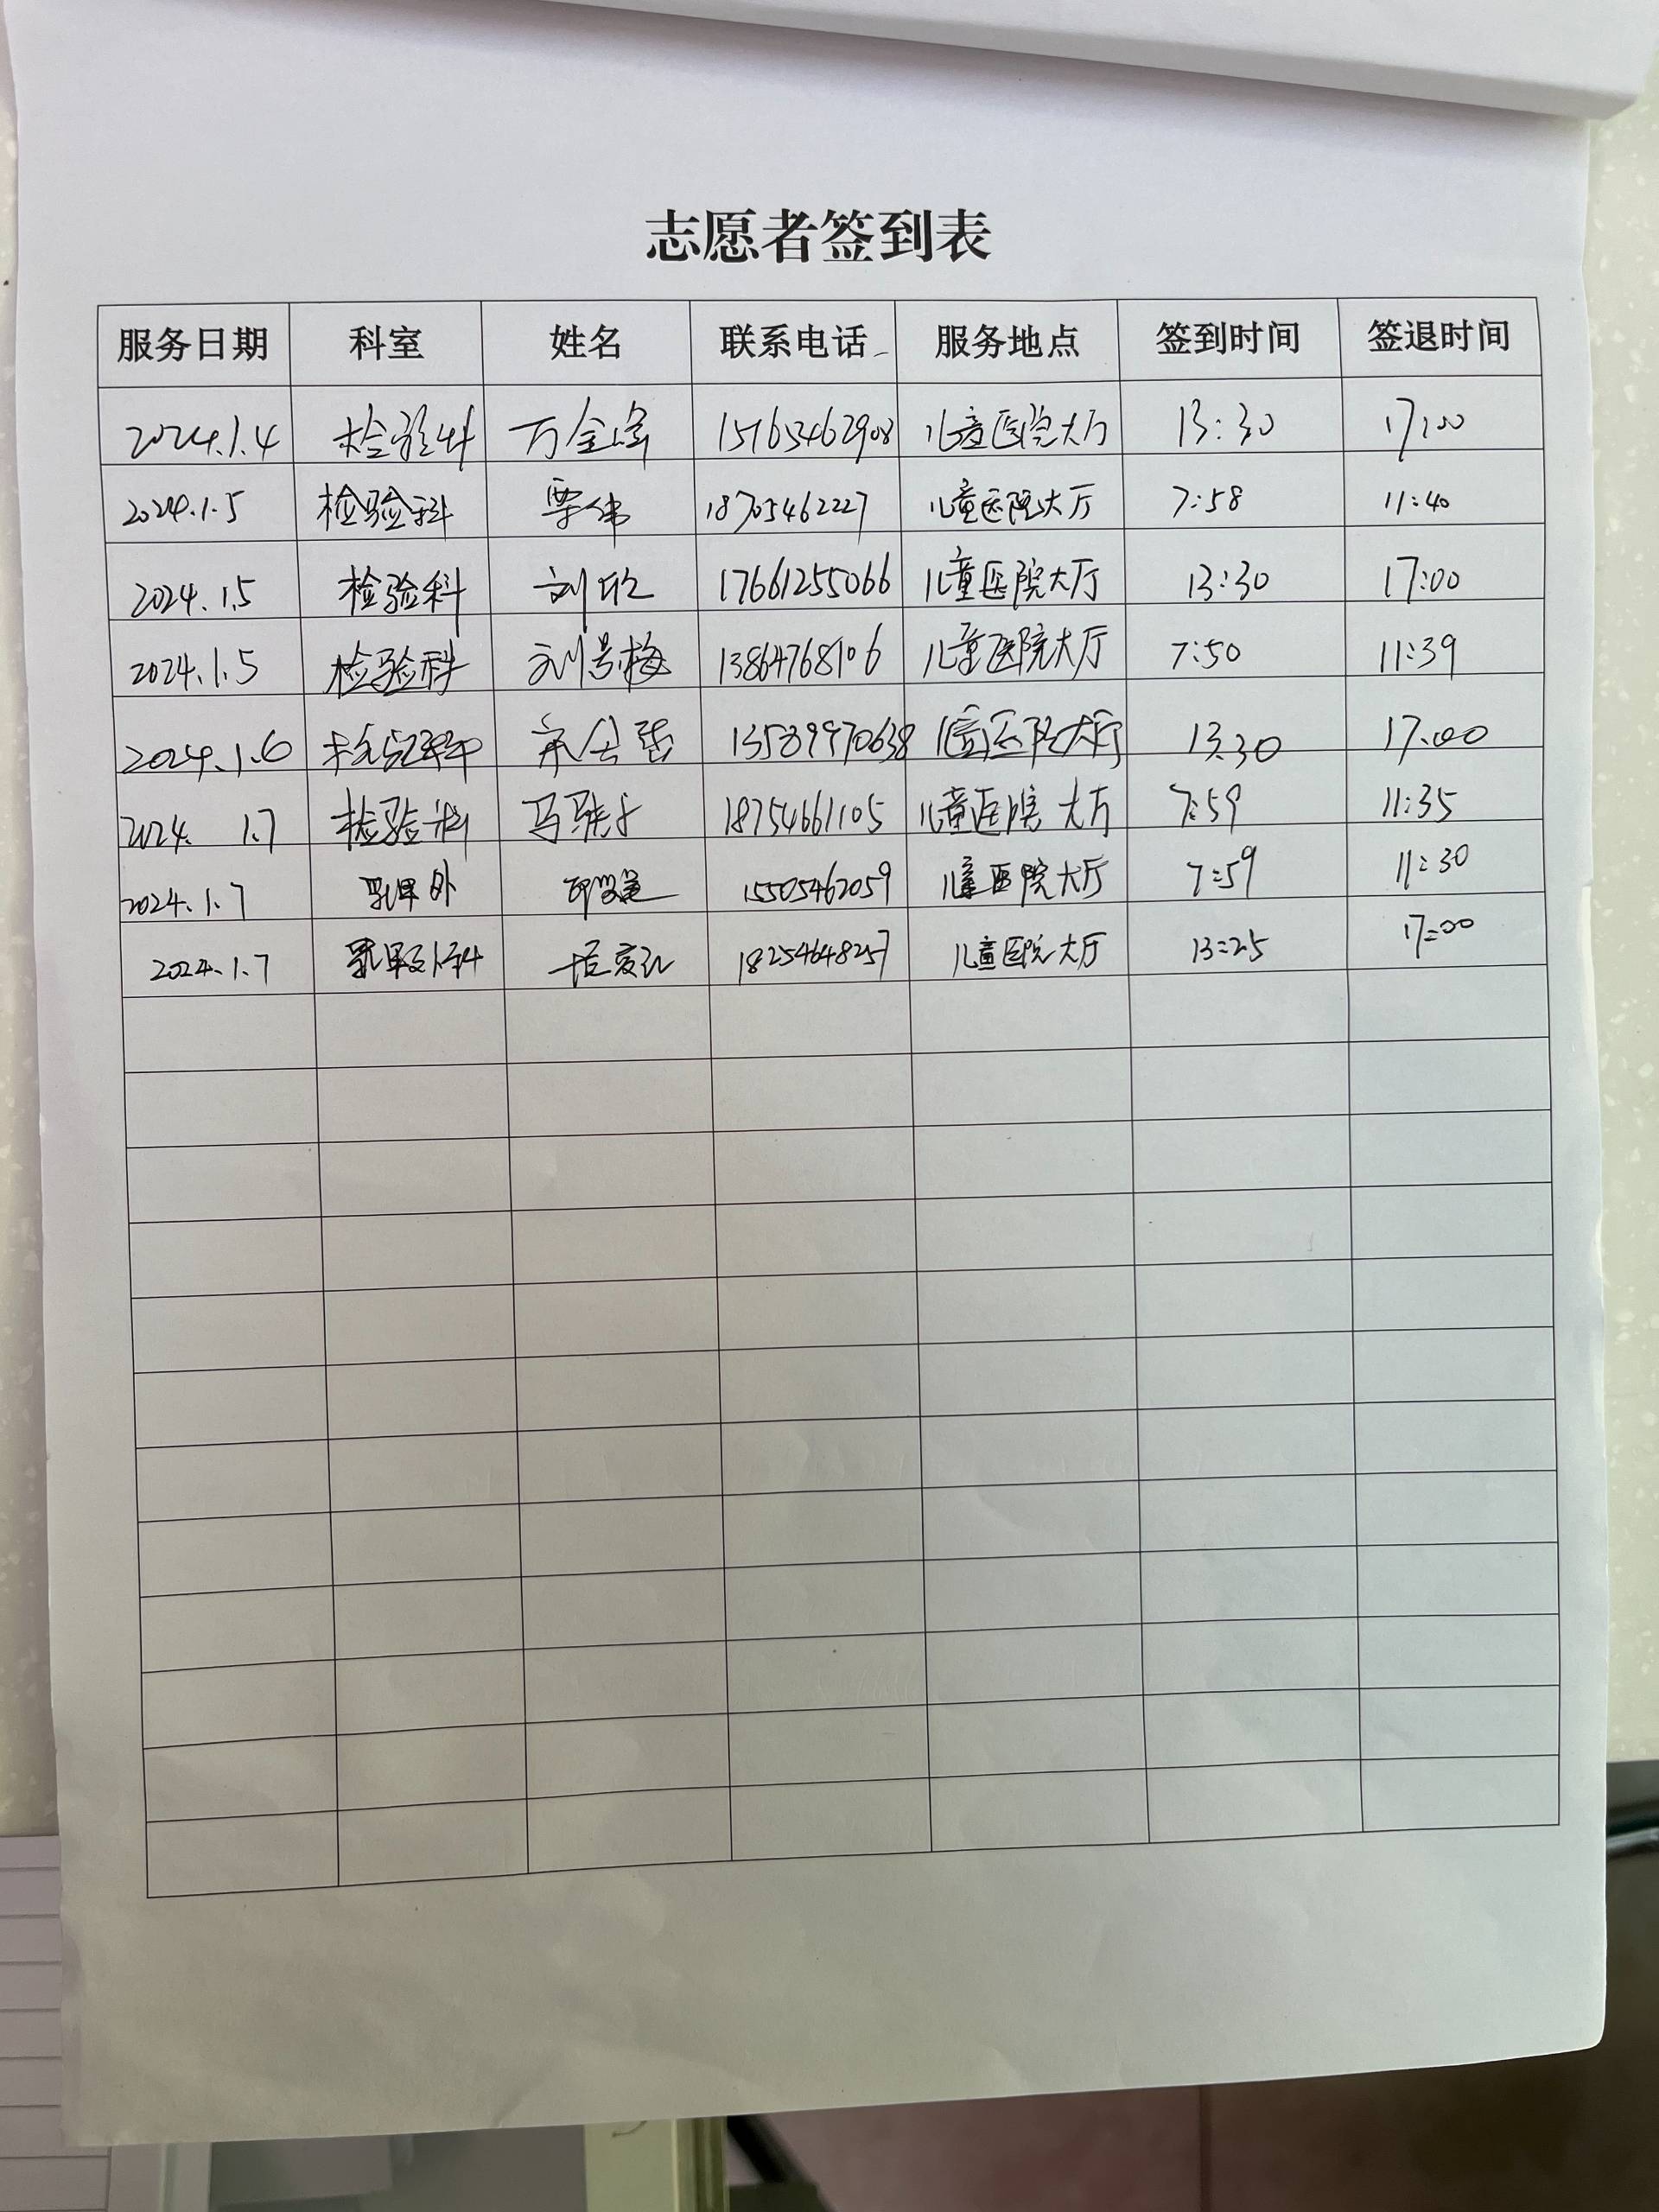 志愿者签到表
服务日期 科室 姓名 联系电话 服务地点 签到时间 签退时间
2024.1.4 检验科 万金峰 15763462908 儿童医院大厅 13:30 17:00
2024.1.5 检验科 栗伟 18705462227 儿童医院大厅 7:58 11:40
2024.1.5 检验科 刘欣 17661255066 儿童医院大厅 13:30 17:00
2024.1.5 检验科 刘梅 13864768106 儿童医院大厅 7:50 11:39
2024.1.6 检验科 13589970638 儿童医院大厅 13:30 17:00
2024. 1.7 检验科 马 18754661105 儿童医院大厅 7:59 11:35
2024.1.7 乳甲外 15505462059 儿童医院大厅 7:59 11:30
2024.1.7 乳甲外科 18254648257 儿童医院大厅 13:25 17:00